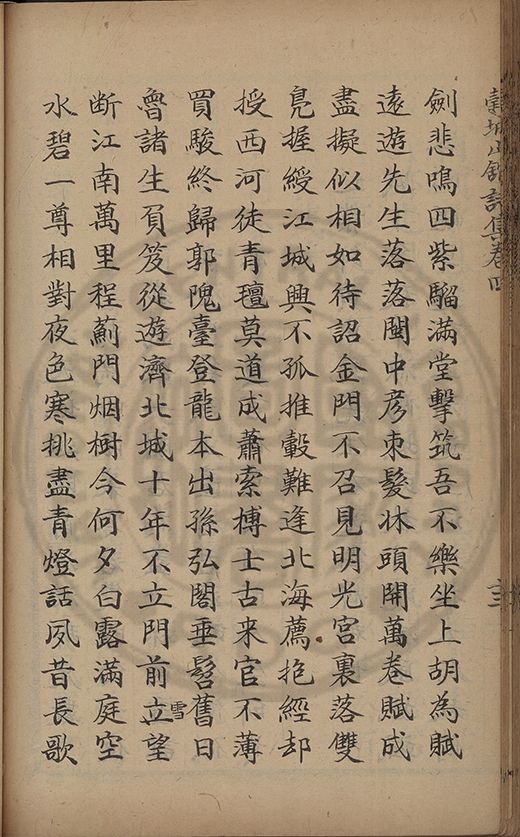 穀城山館詩集卷四
劍悲鳴四紫騮滿堂擊筑吾不樂坐上胡為賦
遠遊先生落落閩中彦束髮牀頭開萬卷賦成
盡擬似相如待詔金門不召見明光宮裏落雙
鳧握綬江城興不孤推轂難逢北海薦抱經却
授西河徒青氊莫道成蕭索博士古来官不薄
買駿終歸郭隗臺登龍本出孫弘閣垂髫舊日
魯諸生負笈從遊濟北城十年不立門前立望
雪
断江南萬里程薊門烟樹今何夕白露滿庭空
水碧一尊相對夜色寒挑盡青燈話夙昔長歌